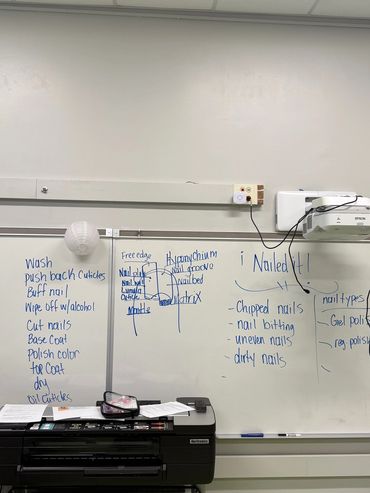 Wash
push back cuticles
Buff nail
Wipe off w/alcohol
Cut nails
Base Coat
Polish color
top Coat
dry
Oil Cuticles
Free edge
Nail plate
Lunula
Cuticle
Mantle
Hyponychium
Nail groove
Nail bed
Matrix
i Nailed it!
- Chipped nails
- nail bitting
- uneven nails
- dirty nails
-
nail types
- Gel poli
- reg. polish
EPSON